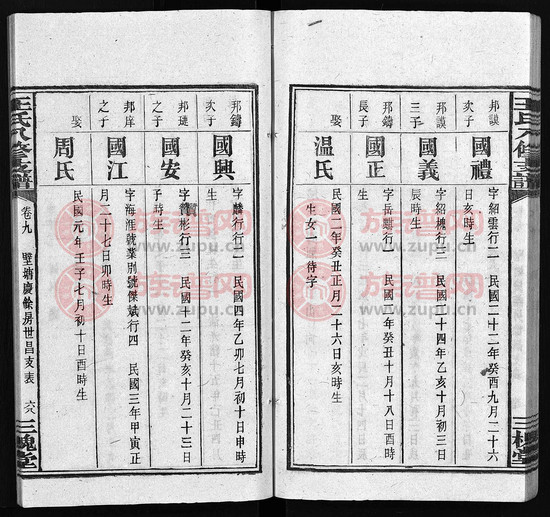 王氏八修支譜
三槐堂
邦謨次子
國禮
字紹雲行二 民國二十二年癸酉九月二十六
日亥時生
邦謨三子
國義
字紹機行三 民國二十四年乙亥十月初三日
辰時生
邦鑄長子
國正
字岳 行一 民國十二年癸亥十月十八日酉時
生
娶
温氏
民國二年癸丑正月二十六日亥時生
生女二 待字
邦鑄次子
國興
字麟行行二 民國四年乙卯七月初十日申時
生
邦璉之子
國安
字贊彬行三 民國十二年癸亥十月二十三日
子時生
邦庠之子
國江
字海涯號業別號傑斌行四 民國三年甲寅正
月二十七日卯時生
娶
周氏
民國元年壬子七月初十日酉時生
王氏八修支譜
卷九
壁塘慶餘房世昌支表
六八
三槐堂
族譜网
www.zupu.cn